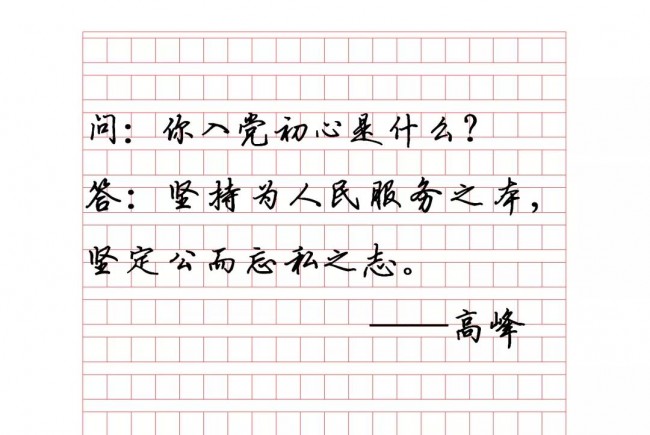 问：你入党初心是什么？
答：坚持为人民服务之本，
坚定公而忘私之志。
——高峰